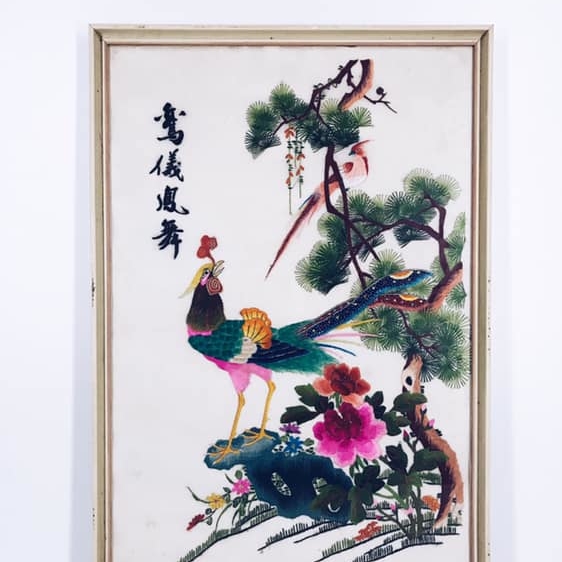 鸞儀鳳舞